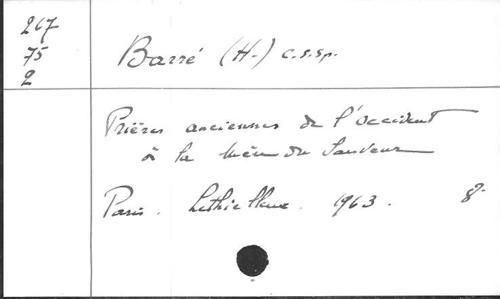 267
75
2
Barré (H.) c.s.sp.
Prières anciennes de l'Occident
à la Mère du Sauveur
Paris. Lethielleux. 1963. 8°